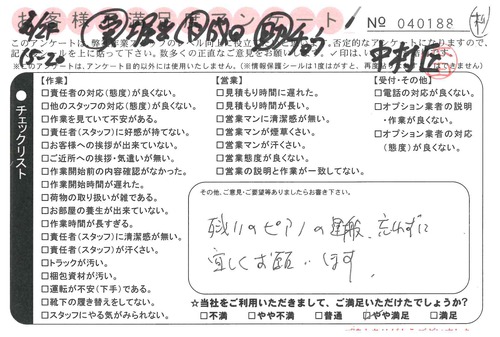 お客様満足度アンケート
No 040188
15-20
このアンケートは、弊
✓印は、い
※このアンケートは、アンケート目的以外には使用いたしません。(※情報保護シールは1度はがすと、再度貼
はできません)
チェックリスト
【作業】
□責任者の対応(態度)が良くない。
□他のスタッフの対応(態度)が良くない。
□作業を見ていて不安がある。
□責任者(スタッフ)に好感が持てない。
□お客様への挨拶が出来ていない。
□ご近所への挨拶・気遣いが無い。
□作業開始前の内容確認がなかった。
□作業開始時間が遅れた。
□荷物の取り扱いが雑である。
□お部屋の養生が出来ていない。
□作業時間が長すぎる。
□責任者(スタッフ)に清潔感が無い。
□責任者(スタッフ)が汗くさい。
□トラックが汚い。
□梱包資材が汚い。
□運転が不安(下手)である。
□靴下の履き替えをしてない。
□スタッフにやる気がみられない。
【営業】
□見積もり時間に遅れた。
□見積もり時間が長い。
□営業マンに清潔感が無い。
□営業マンが煙草くさい。
□営業マンが汗くさい。
□営業態度が良くない。
□営業の説明と作業が一致してない。
【受付・その他】
□電話の対応が良くない。
□オプション業者の説明
・作業が良くない。
□オプション業者の対応
(態度)が良くない。
その他、ご意見・ご要望等ありましたらお書き下さい。
残りのピアノの運搬、忘れずに
宜しくお願いします
☆当社をご利用いただきまして、ご満足いただけたでしょうか?
□不満 □やや不満 □普通 □やや満足 □満足